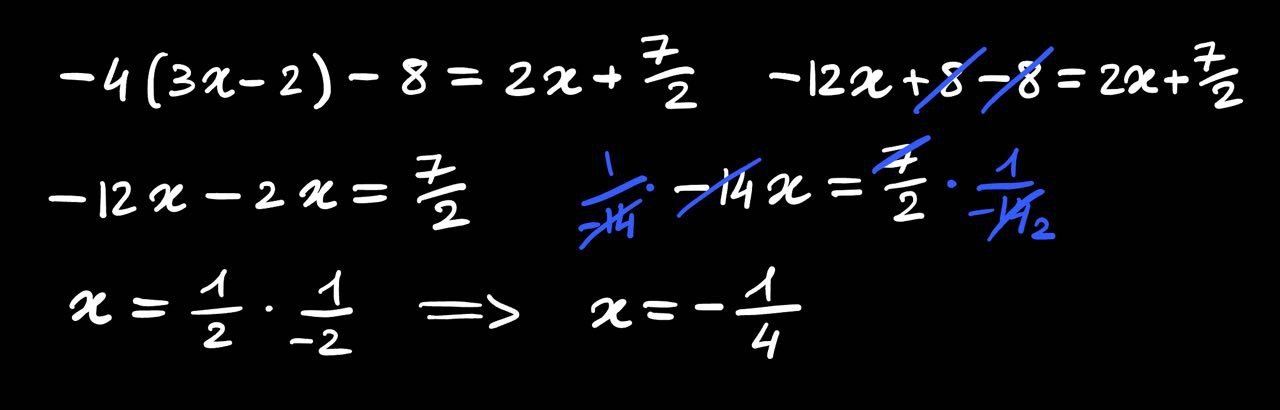 -4(3x-2)-8=2x+7/2 -12x+8-8=2x+7/2
-12x-2x=7/2 1/-14·-14x=7/2·1/-14 2
x=1/2·1/-2 ⟹ x=-1/4